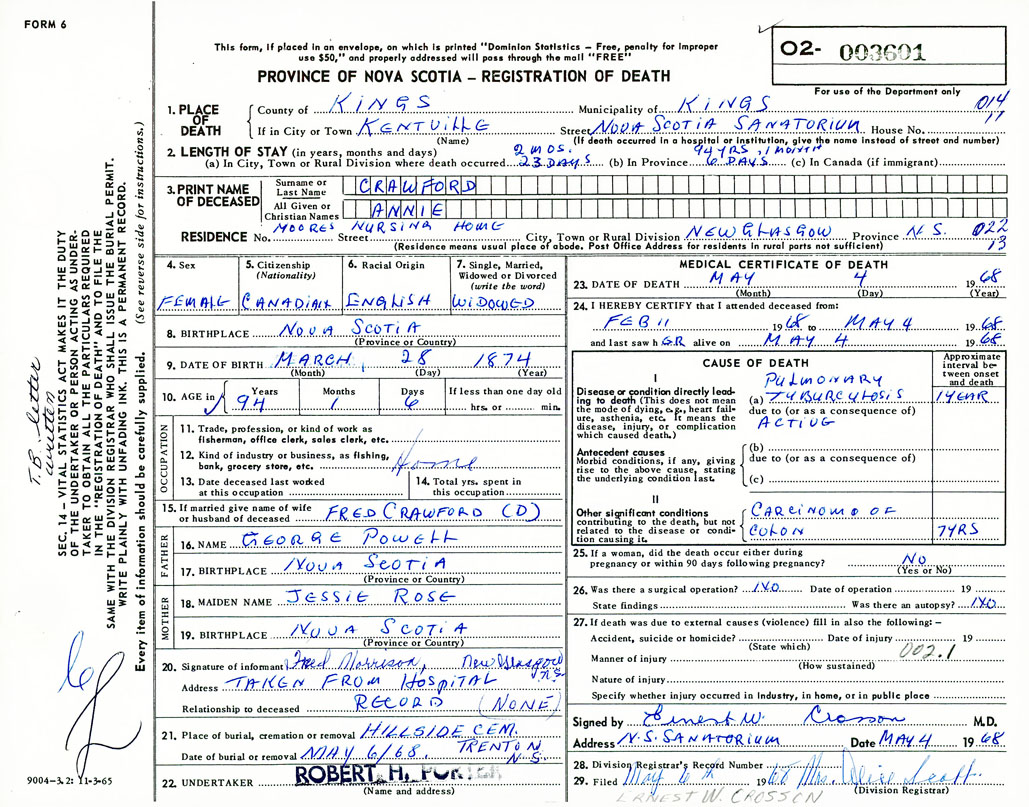 FORM 6
This form, if placed in an envelope, on which is printed "Dominion Statistics – Free, penalty for improper
use $50," and properly addressed will pass through the mail "FREE"
PROVINCE OF NOVA SCOTIA – REGISTRATION OF DEATH
02- 003601
For use of the Department only
1. PLACE OF DEATH
County of KINGS Municipality of KINGS 014
If in City or Town KENTVILLE Street NOVA SCOTIA SANATORIUM House No. 17
(Name) (If death occurred in a hospital or institution, give the name instead of street and number)
2. LENGTH OF STAY (in years, months and days) 2 MOS. 94 YRS, 1 MONTH
(a) In City, Town or Rural Division where death occurred 23 DAYS (b) In Province 6 DAYS (c) In Canada (if immigrant)
3. PRINT NAME OF DECEASED
Surname or Last Name CRAWFORD
All Given or Christian Names ANNIE
MOORES NURSING HOME
RESIDENCE No. Street City, Town or Rural Division NEW GLASGOW Province N.S. 022
(Residence means usual place of abode. Post Office Address for residents in rural parts not sufficient) 13
4. Sex
FEMALE
5. Citizenship
(Nationality)
CANADIAN
6. Racial Origin
ENGLISH
7. Single, Married, Widowed or Divorced
(write the word)
WIDOWED
8. BIRTHPLACE NOVA SCOTIA
(Province or Country)
9. DATE OF BIRTH MARCH 28 1874
(Month) (Day) (Year)
10. AGE in
Years Months Days If less than one day old
94 1 6 hrs. or min.
OCCUPATION
11. Trade, profession, or kind of work as
fisherman, office clerk, sales clerk, etc.
12. Kind of industry or business, as fishing,
bank, grocery store, etc. Home
13. Date deceased last worked
at this occupation
14. Total yrs. spent in
this occupation
15. If married give name of wife
or husband of deceased FRED CRAWFORD (D)
FATHER
16. NAME GEORGE POWELL
17. BIRTHPLACE NOVA SCOTIA
(Province or Country)
MOTHER
18. MAIDEN NAME JESSIE ROSE
19. BIRTHPLACE NOVA SCOTIA
(Province or Country)
20. Signature of informant Fred Morrison, New Glasgow N.S.
Address TAKEN FROM HOSPITAL
Relationship to deceased RECORD (NONE)
21. Place of burial, cremation or removal HILLSIDE CEM.
Date of burial or removal MAY 6/68. TRENTON N.S.
22. UNDERTAKER ROBERT H. PORTER
(Name and address)
MEDICAL CERTIFICATE OF DEATH
23. DATE OF DEATH MAY 4 1968
(Month) (Day) (Year)
24. I HEREBY CERTIFY that I attended deceased from:
FEB 11 1968 to MAY 4 1968
and last saw hER alive on MAY 4 1968
CAUSE OF DEATH
Approximate interval between onset and death
I
Disease or condition directly leading to death (This does not mean the mode of dying, e.g., heart failure, asthenia, etc. It means the disease, injury, or complication which caused death.)
PULMONARY
(a) TUBURCULOSIS 1 YEAR
due to (or as a consequence of)
ACTIVE
Antecedent causes
Morbid conditions, if any, giving rise to the above cause, stating the underlying condition last.
(b)
due to (or as a consequence of)
(c)
II
Other significant conditions contributing to the death, but not related to the disease or condition causing it.
CARCINOMO OF
COLON 7 YRS
25. If a woman, did the death occur either during
pregnancy or within 90 days following pregnancy? NO
(Yes or No)
26. Was there a surgical operation? NO Date of operation 19
State findings Was there an autopsy? NO
27. If death was due to external causes (violence) fill in also the following: –
Accident, suicide or homicide? Date of injury 19
(State which)
Manner of injury 002.1
(How sustained)
Nature of injury
Specify whether injury occurred in industry, in home, or in public place
Signed by Ernest W. Crosson M.D.
Address N.S. SANATORIUM Date MAY 4 1968
28. Division Registrar's Record Number
29. Filed May 6 th 1968 Mrs. Alice Scott.
(Division Registrar)
ERNEST W. CROSSON
T.B. letter
written
SEC. 14 – VITAL STATISTICS ACT MAKES IT THE DUTY
OF THE UNDERTAKER OR PERSON ACTING AS UNDERTAKER
TO OBTAIN ALL THE PARTICULARS REQUIRED
IN THE "REGISTRATION OF DEATH" AND TO FILE THE
SAME WITH THE DIVISION REGISTRAR WHO SHALL ISSUE THE BURIAL PERMIT.
WRITE PLAINLY WITH UNFADING INK. THIS IS A PERMANENT RECORD.
Every item of information should be carefully supplied. (See reverse side for instructions.)
9004-3.2: 11-3-65